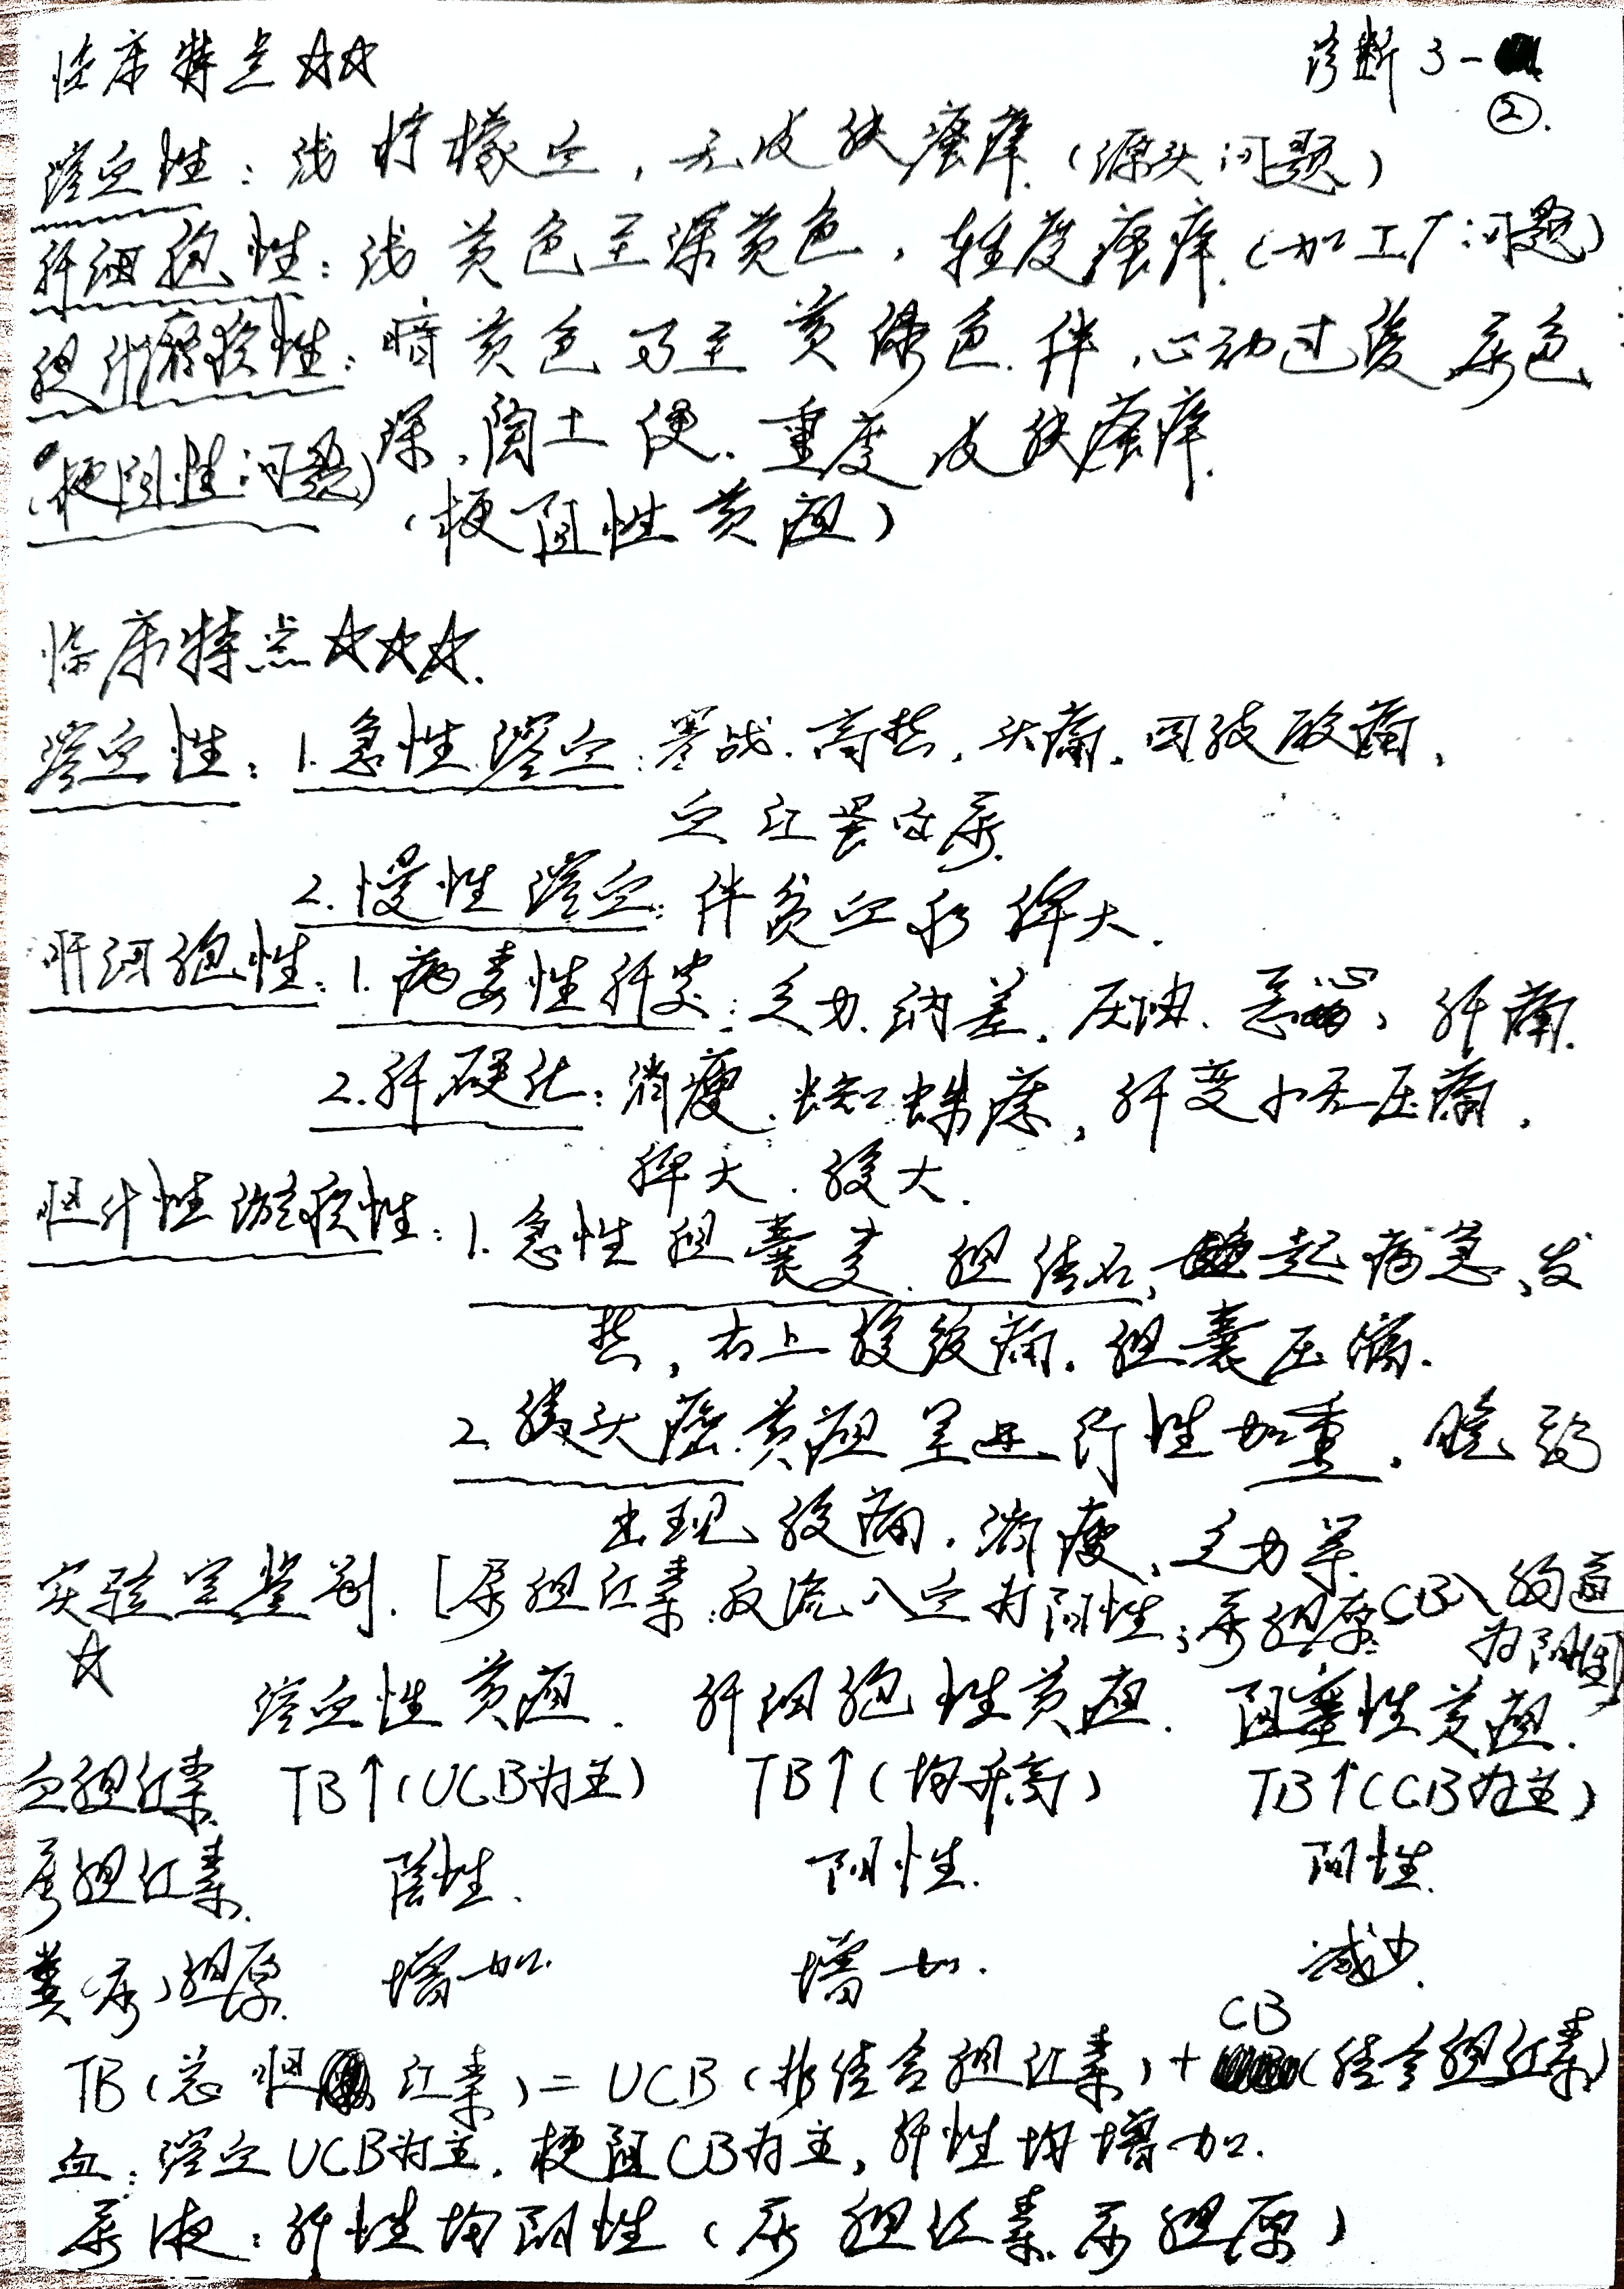 临床特点☆☆
诊断3-
②.
溶血性：浅柠檬色，无皮肤瘙痒.（源头问题）
肝细胞性：浅黄色至深黄色，轻度瘙痒.（加工厂问题）
胆汁瘀积性：暗黄色乃至黄绿色.伴.心动过缓.尿色
深.陶土便.重度皮肤瘙痒.
（梗阻性问题）
（梗阻性黄疸）
临床特点☆☆☆.
溶血性：1.急性溶血：寒战.高热，头痛.四肢酸痛，
血红蛋白尿.
2.慢性溶血：伴贫血和脾大.
肝细胞性：1.病毒性肝炎：乏力.纳差.厌油.恶心、肝痛.
2.肝硬化：消瘦.蜘蛛痣，肝变小无压痛，
脾大.腹大.
胆汁性淤积性：1.急性胆囊炎.胆结石，起病急，发
热，右上腹绞痛.胆囊压痛.
2.胰头癌.黄疸呈进行性加重.晚期
出现腹痛.消瘦、乏力等.
实验室鉴别.[尿胆红素：反流入血为阳性；尿胆原：CB入肠道
为阳性]
☆
溶血性黄疸. 肝细胞性黄疸. 阻塞性黄疸.
血胆红素 TB↑（UCB为主） TB↑（均升高） TB↑（CB为主）
尿胆红素. 阴性. 阳性. 阳性.
粪（尿）胆原. 增加. 增加. 减少.
TB（总胆红素）=UCB（非结合胆红素）+CB（结合胆红素）
血：溶血UCB为主.梗阻CB为主，肝性均增加.
尿液：肝性均阳性（尿胆红素.尿胆原）